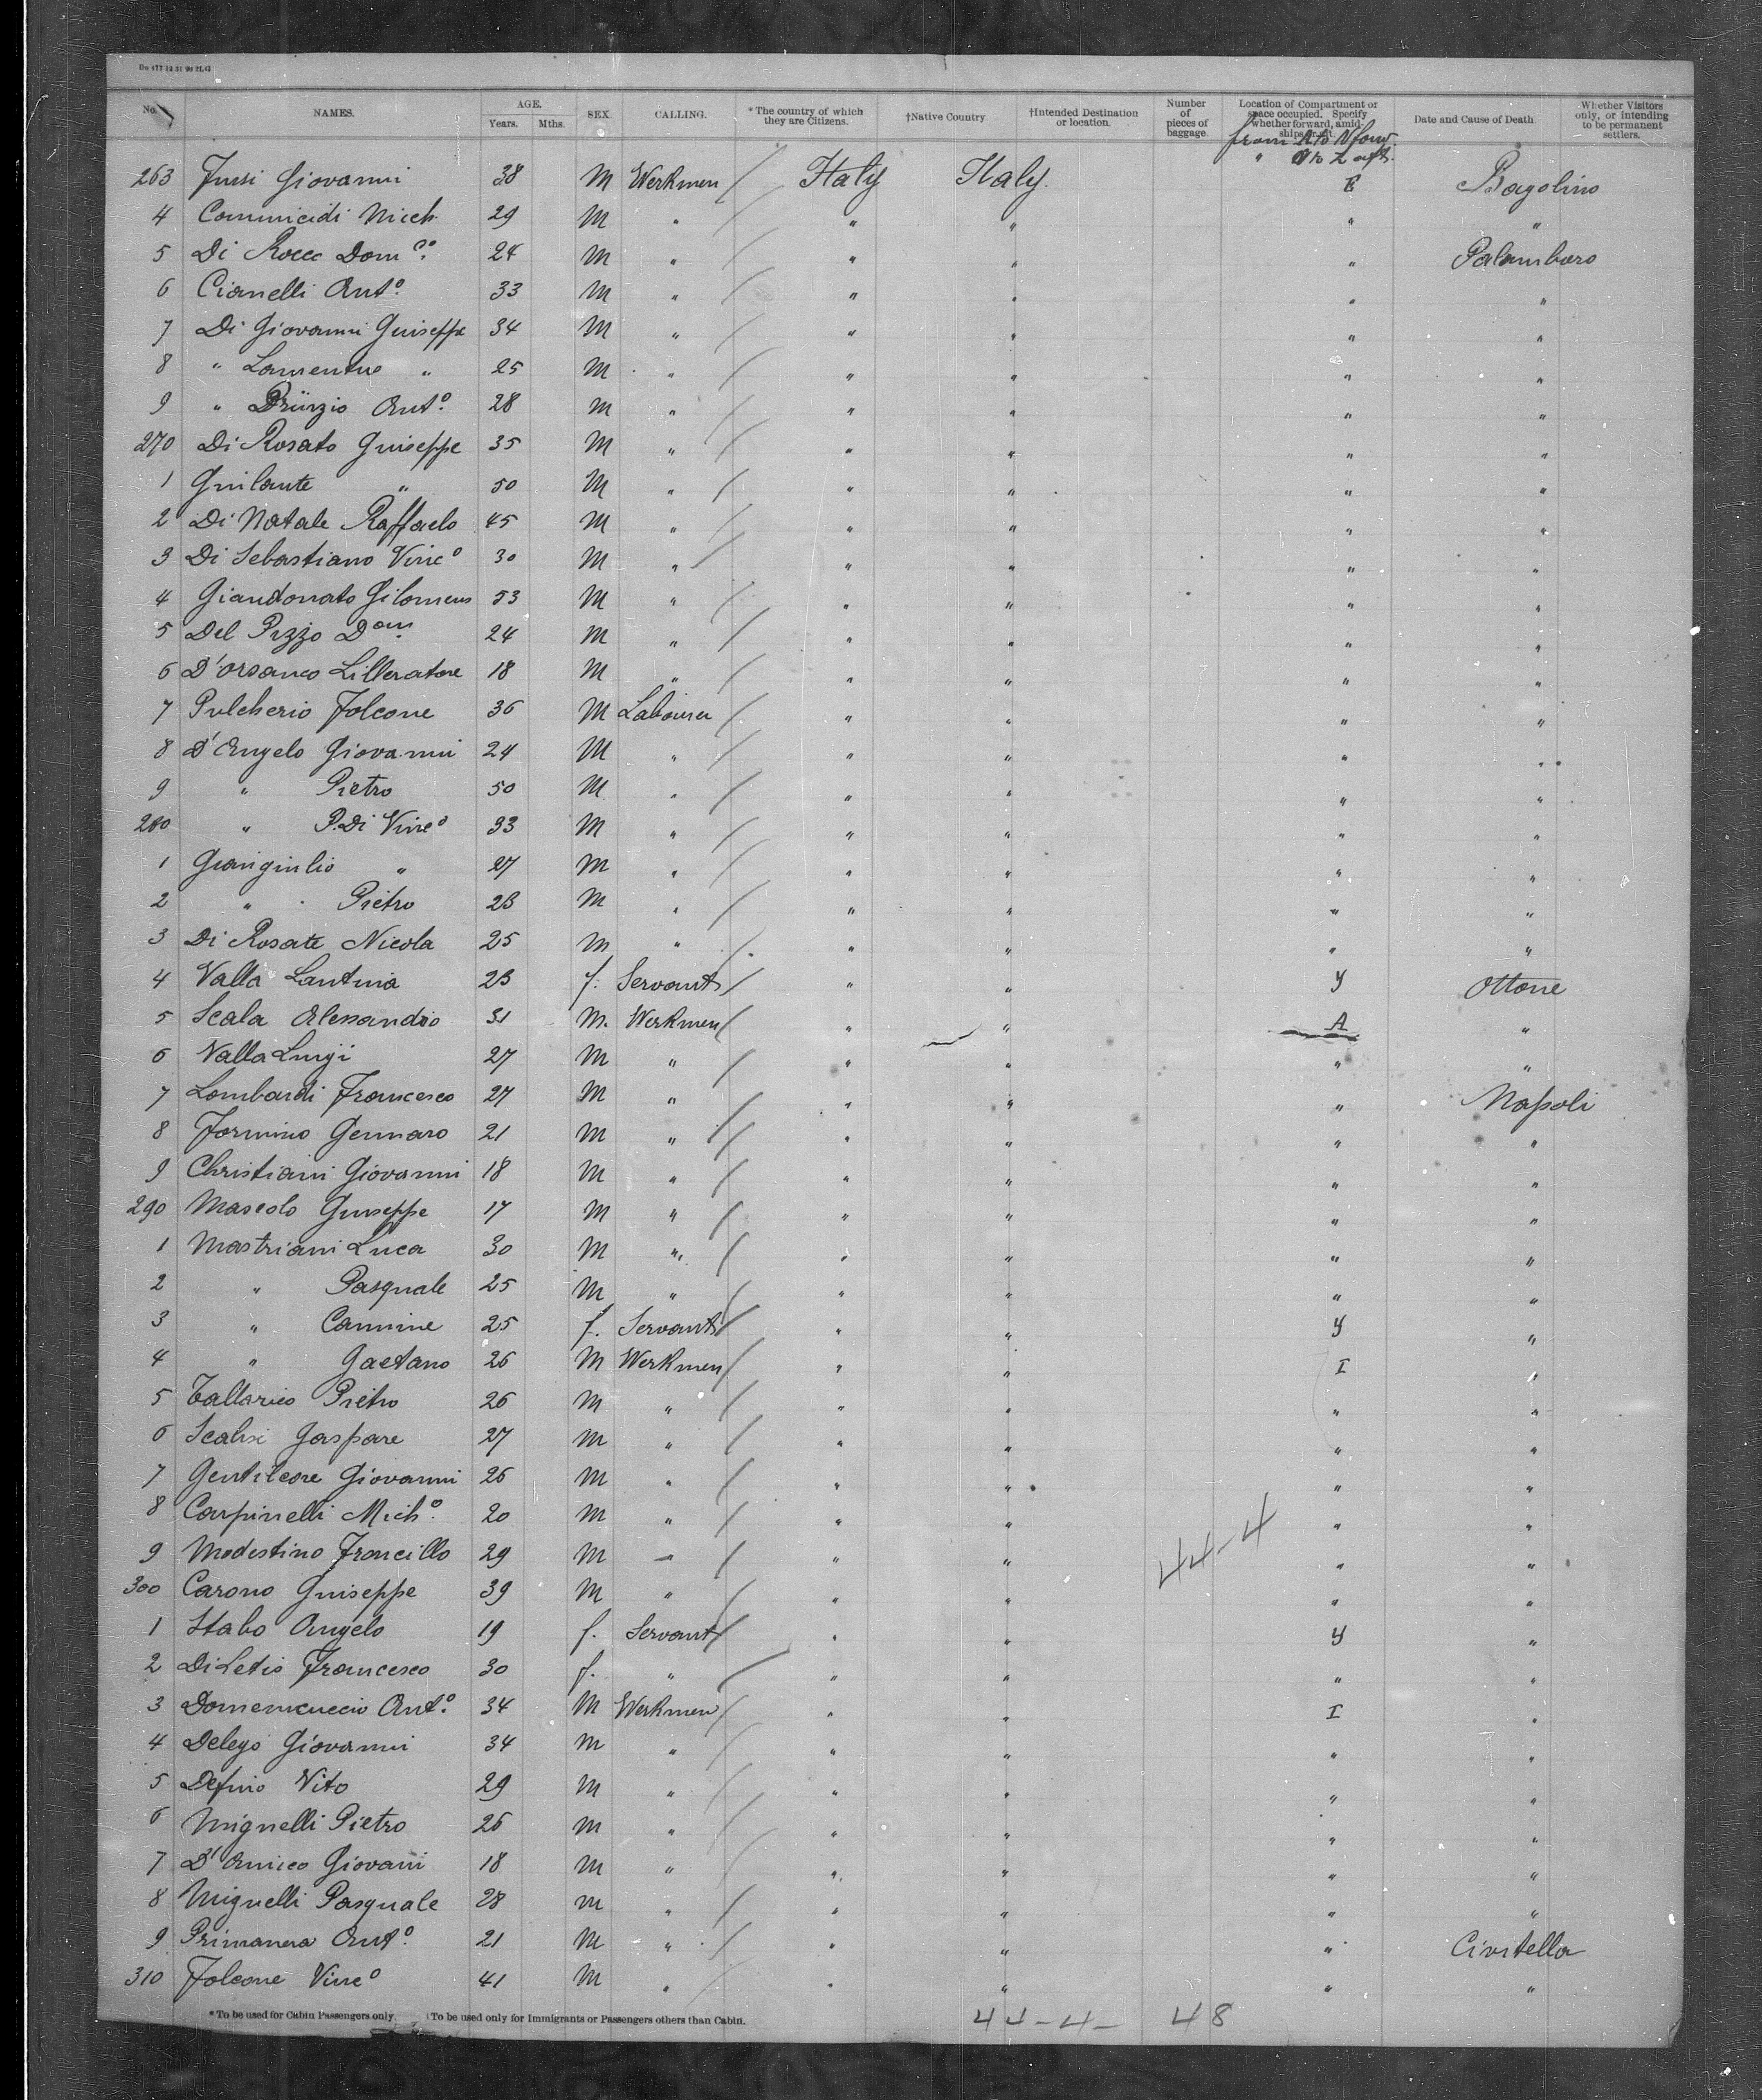 No. NAMES. AGE. Years. Mths. SEX. CALLING. *The country of which they are Citizens. †Native Country †Intended Destination or location. Number of pieces of baggage. Location of Compartment or space occupied. Specify whether forward, amid-ships or aft. Date and Cause of Death. Whether Visitors only, or intending to be permanent settlers.
from A to N forw.
" O to Z aft.
263 Fussi Giovanni 38 M Werkmen Italy Italy. B Bagolino
4 Communicidi Nich 29 M " " " " "
5 Di Rocco Dom.º 24 M " " " " Palambaro
6 Cianelli Ant.º 33 M " " " " "
7 Di Giovanni Guiseppe 34 M " " " " "
8 " Lamentus " 25 M " " " " "
9 " Ant.º 28 M " " " " "
270 Di Rosato Guiseppe 35 M " " " " "
1 Guilante " 50 M " " " " "
2 Di Natale Raffaelo 45 M " " " " "
3 Di Sebastiano Vincº 30 M " " " " "
4 Giandonato Gilomeno 53 M " " " " "
5 Del Pizzo Dom 24 M " " " " "
6 D'Orsaneo Lilleratore 18 M " " " " "
7 Pulcherio Folcone 36 M Labourer " " " "
8 D'Angelo Giovanni 24 M " " " " "
9 " Pietro 50 M " " " " "
280 " P. Di Vincº 33 M " " " " "
1 Giangiulio " 27 M " " " " "
2 " Pietro 23 M " " " " "
3 Di Rosate Nicola 25 M " " " " "
4 Valla Lantina 23 f. Servant " " Y Ottone
5 Scala Alessandro 31 M. Werkmen " " A "
6 Valla Luigi 27 M " " " " "
7 Lombardi Francesco 27 M " " " " Napoli
8 Formino Gennaro 21 M " " " " "
9 Christiani Giovanni 18 M " " " " "
290 Mascolo Guiseppe 17 M " " " " "
1 Mastriani Luca 30 M " " " " "
2 " Pasquale 25 M " " " " "
3 " Carmine 25 f. Servant " " Y "
4 " Gaetano 26 M Werkmen " " I "
5 Tallarico Pietro 26 M " " " " "
6 Scalisi Gaspare 27 M " " " " "
7 Gentilcore Giovanni 26 M " " " " "
8 Carpinelli Mich.º 20 M " " " " "
9 Modestino Francillo 29 M " " " " "
44-4
300 Carono Guiseppe 39 M " " " " "
1 Stabo Angelo 19 f. Servant " " Y "
2 Di Letio Francesco 30 f. " " " " "
3 Domenicuccio Ant.º 34 M Werkmen " " I "
4 Delego Giovanni 34 M " " " " "
5 Defino Vito 29 M " " " " "
6 Mignelli Pietro 26 M " " " " "
7 D'Amico Giovani 18 M " " " " "
8 Mignelli Pasquale 28 M " " " " "
9 Primanera Ant.º 21 M " " " " Civitella
310 Folcone Vincº 41 M " " " " "
*To be used for Cabin Passengers only. †To be used only for Immigrants or Passengers others than Cabin.
44-4- 48